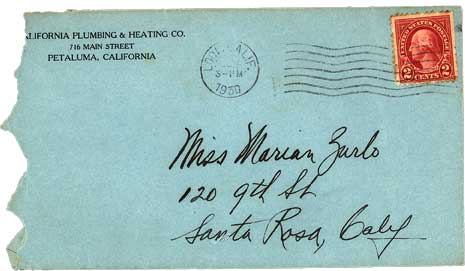 ALIFORNIA PLUMBING & HEATING CO.
716 MAIN STREET
PETALUMA, CALIFORNIA
CALIF
3-PM
1930
UNITED STATES POSTAGE
2 CENTS 2
Miss Marian Zurlo
120 9th St
Santa Rosa, Caly